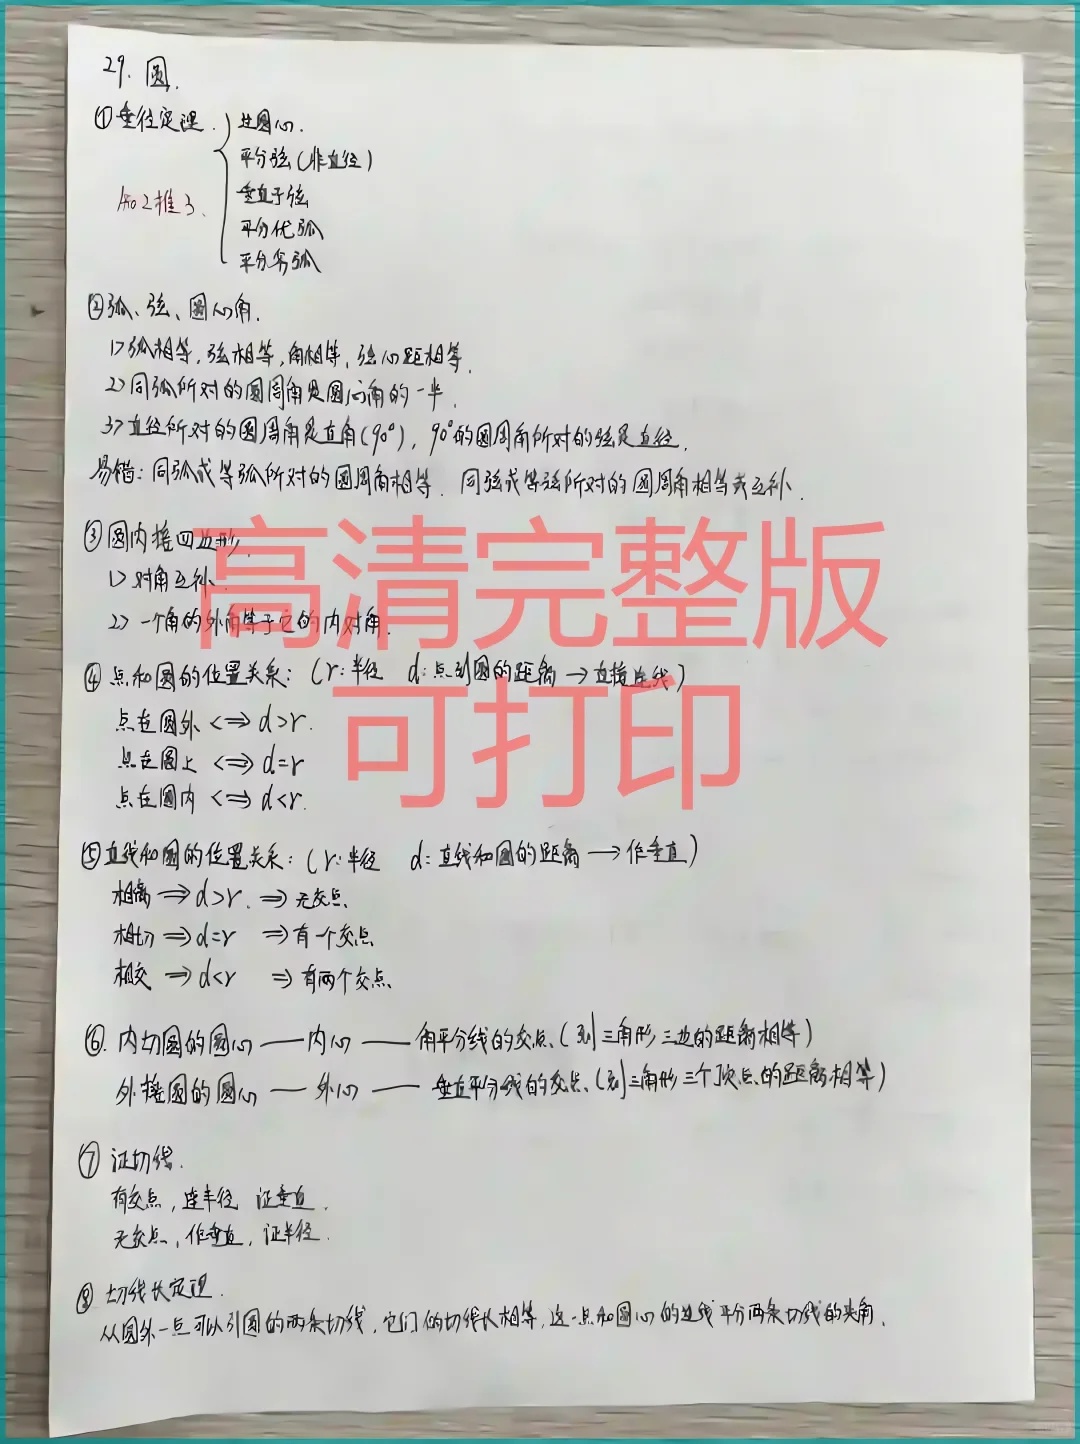 29. 圆.
①垂径定理. 过圆心.
平分弦(非直径)
知2推3. 垂直于弦
平分优弧
平分劣弧
②弧、弦、圆心角.
1>弧相等,弦相等,角相等,弦心距相等.
2>同弧所对的圆周角是圆心角的一半.
3>直径所对的圆周角是直角(90°),90°的圆周角所对的弦是直径.
易错:同弧或等弧所对的圆周角相等. 同弦或等弦所对的圆周角相等或互补.
③圆内接四边形.
1>对角互补.
2>一个角的外角等于它的内对角.
高清完整版
可打印
④点和圆的位置关系:(r:半径 d:点到圆的距离→直接连线)
点在圆外<=>d>r.
点在圆上<=>d=r
点在圆内<=>d<r.
⑤直线和圆的位置关系:(r:半径 d:直线和圆的距离→作垂直)
相离⇒d>r.⇒无交点.
相切⇒d=r ⇒有一个交点
相交⇒d<r ⇒有两个交点.
⑥.内切圆的圆心——内心——角平分线的交点.(到三角形三边的距离相等)
外接圆的圆心——外心——垂直平分线的交点.(到三角形三个顶点的距离相等)
⑦证切线.
有交点,连半径 证垂直.
无交点,作垂直,证半径.
⑧切线长定理.
从圆外一点可以引圆的两条切线,它们的切线长相等,这一点和圆心的连线平分两条切线的夹角.